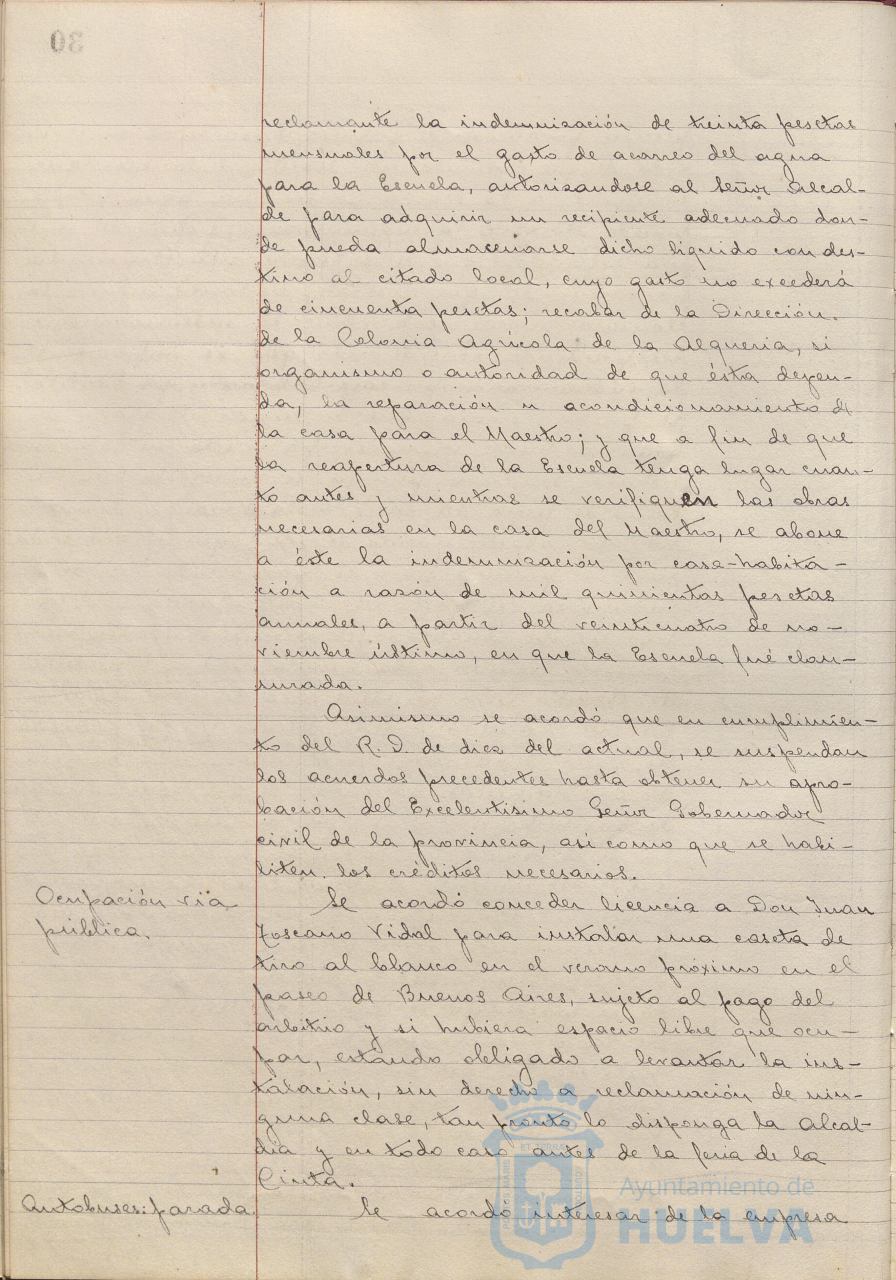 30
reclamante la indemnización de treinta pesetas
mensuales por el gasto de acarreo del agua
para la Escuela, autorizandose al Señor Alcal-
de para adquirir un recipiente adecuado don-
de pueda almacenarse dicho liquido con des-
tino al citado local, cuyo gasto no excederá
de cincuenta pesetas; recabar de la Dirección.
de la Colonia Agrícola de la Alqueria, si
organismo o autoridad de que ésta depen-
da, la reparación u acondicionamiento de
la casa para el Maestro; y que a fin de que
la reapertura de la Escuela tenga lugar cuan-
to antes y mientras se verifiquen las obras
necesarias en la casa del Maestro, se abone
a éste la indemnización por casa-habita-
ción a razón de mil quinientas pesetas
anuales, a partir del veinticuatro de no-
viembre último, en que la Escuela fué clau-
surada.
Asimismo se acordó que en cumplimien-
to del R. D. de diez del actual, se suspendan
los acuerdos precedentes hasta obtener su apro-
bación del Excelentisimo Señor Gobernador
civil de la provincia, asi como que se habi-
liten. los créditos necesarios.
Ocupación vía
pública.
Se acordó conceder licencia a Don Juan
Toscano Vidal para instalar una caseta de
tiro al blanco en el verano próximo en el
paseo de Buenos Aires, sujeto al pago del
arbitrio y si hubiera espacio libre que ocu-
par, estando obligado a levantar la ins-
talación, sin derecho a reclamación de nin-
guna clase, tan pronto lo disponga la Alcal-
día y en todo caso antes de la feria de la
Cinta.
Autobuses: parada.
Se acordó interesar de la empresa
Ayuntamiento de
HUELVA